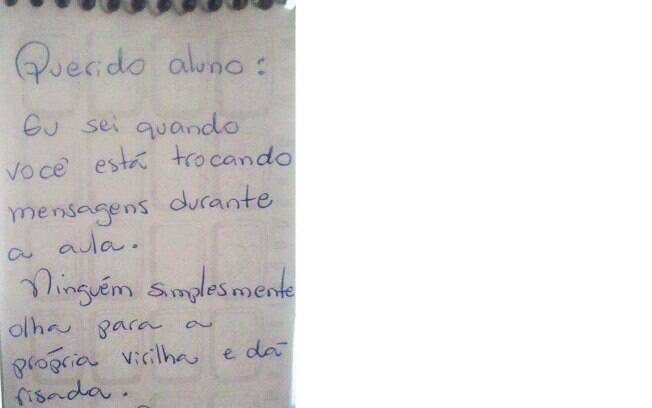 Querido aluno:
Eu sei quando
você está trocando
mensagens durante
a aula.
Ninguém simplesmente
olha para a
própria virilha e dá
risada.